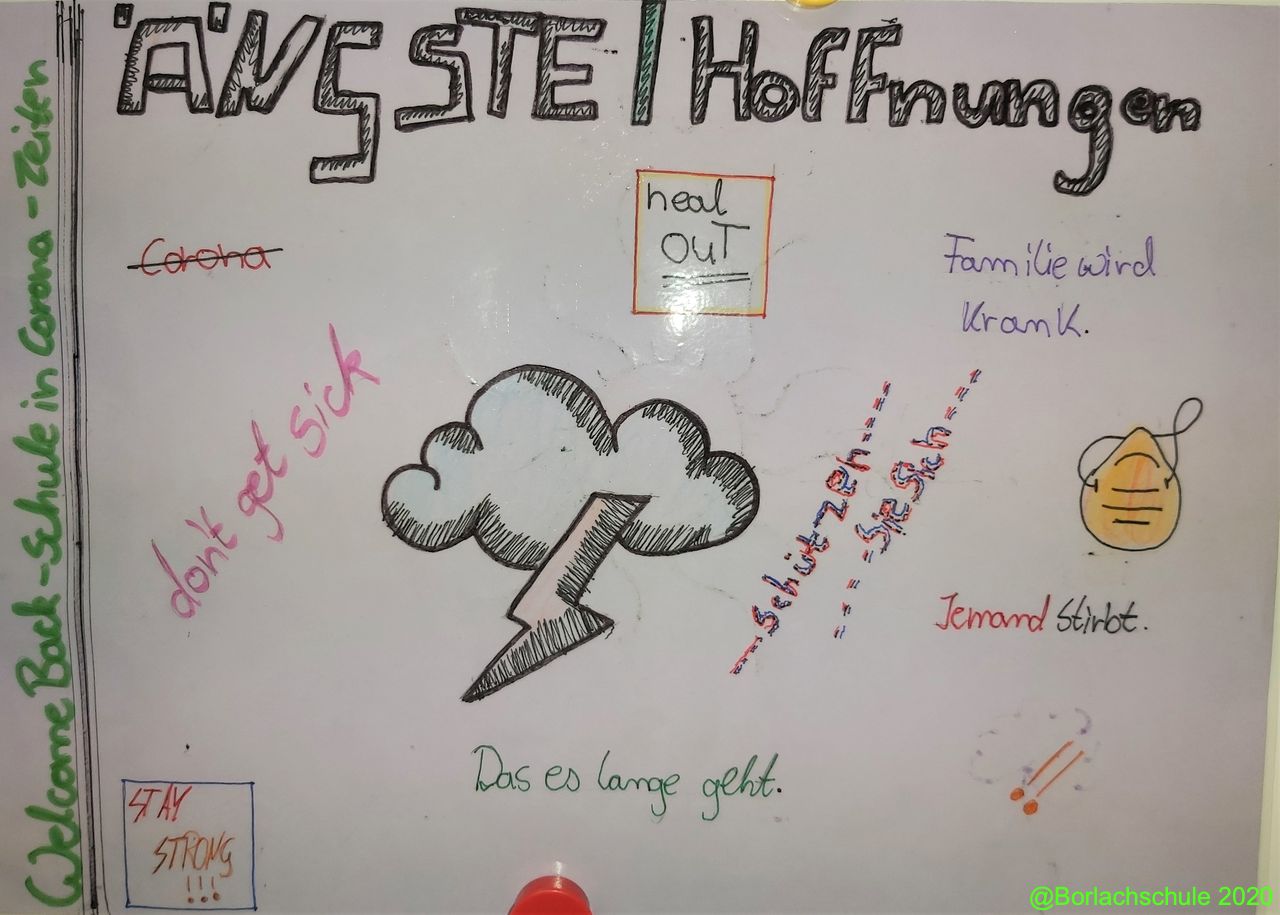 ÄNGSTE | Hoffnungen
Welcome Back - Schule in Corona - Zeiten
Corona
heal
OUT
Familie wird
Krank.
don't get sick
Schützen
Sie Sich
Jemand Stirbt.
Das es lange geht.
!!
STAY
STRONG
!!!
@Borlachschule 2020